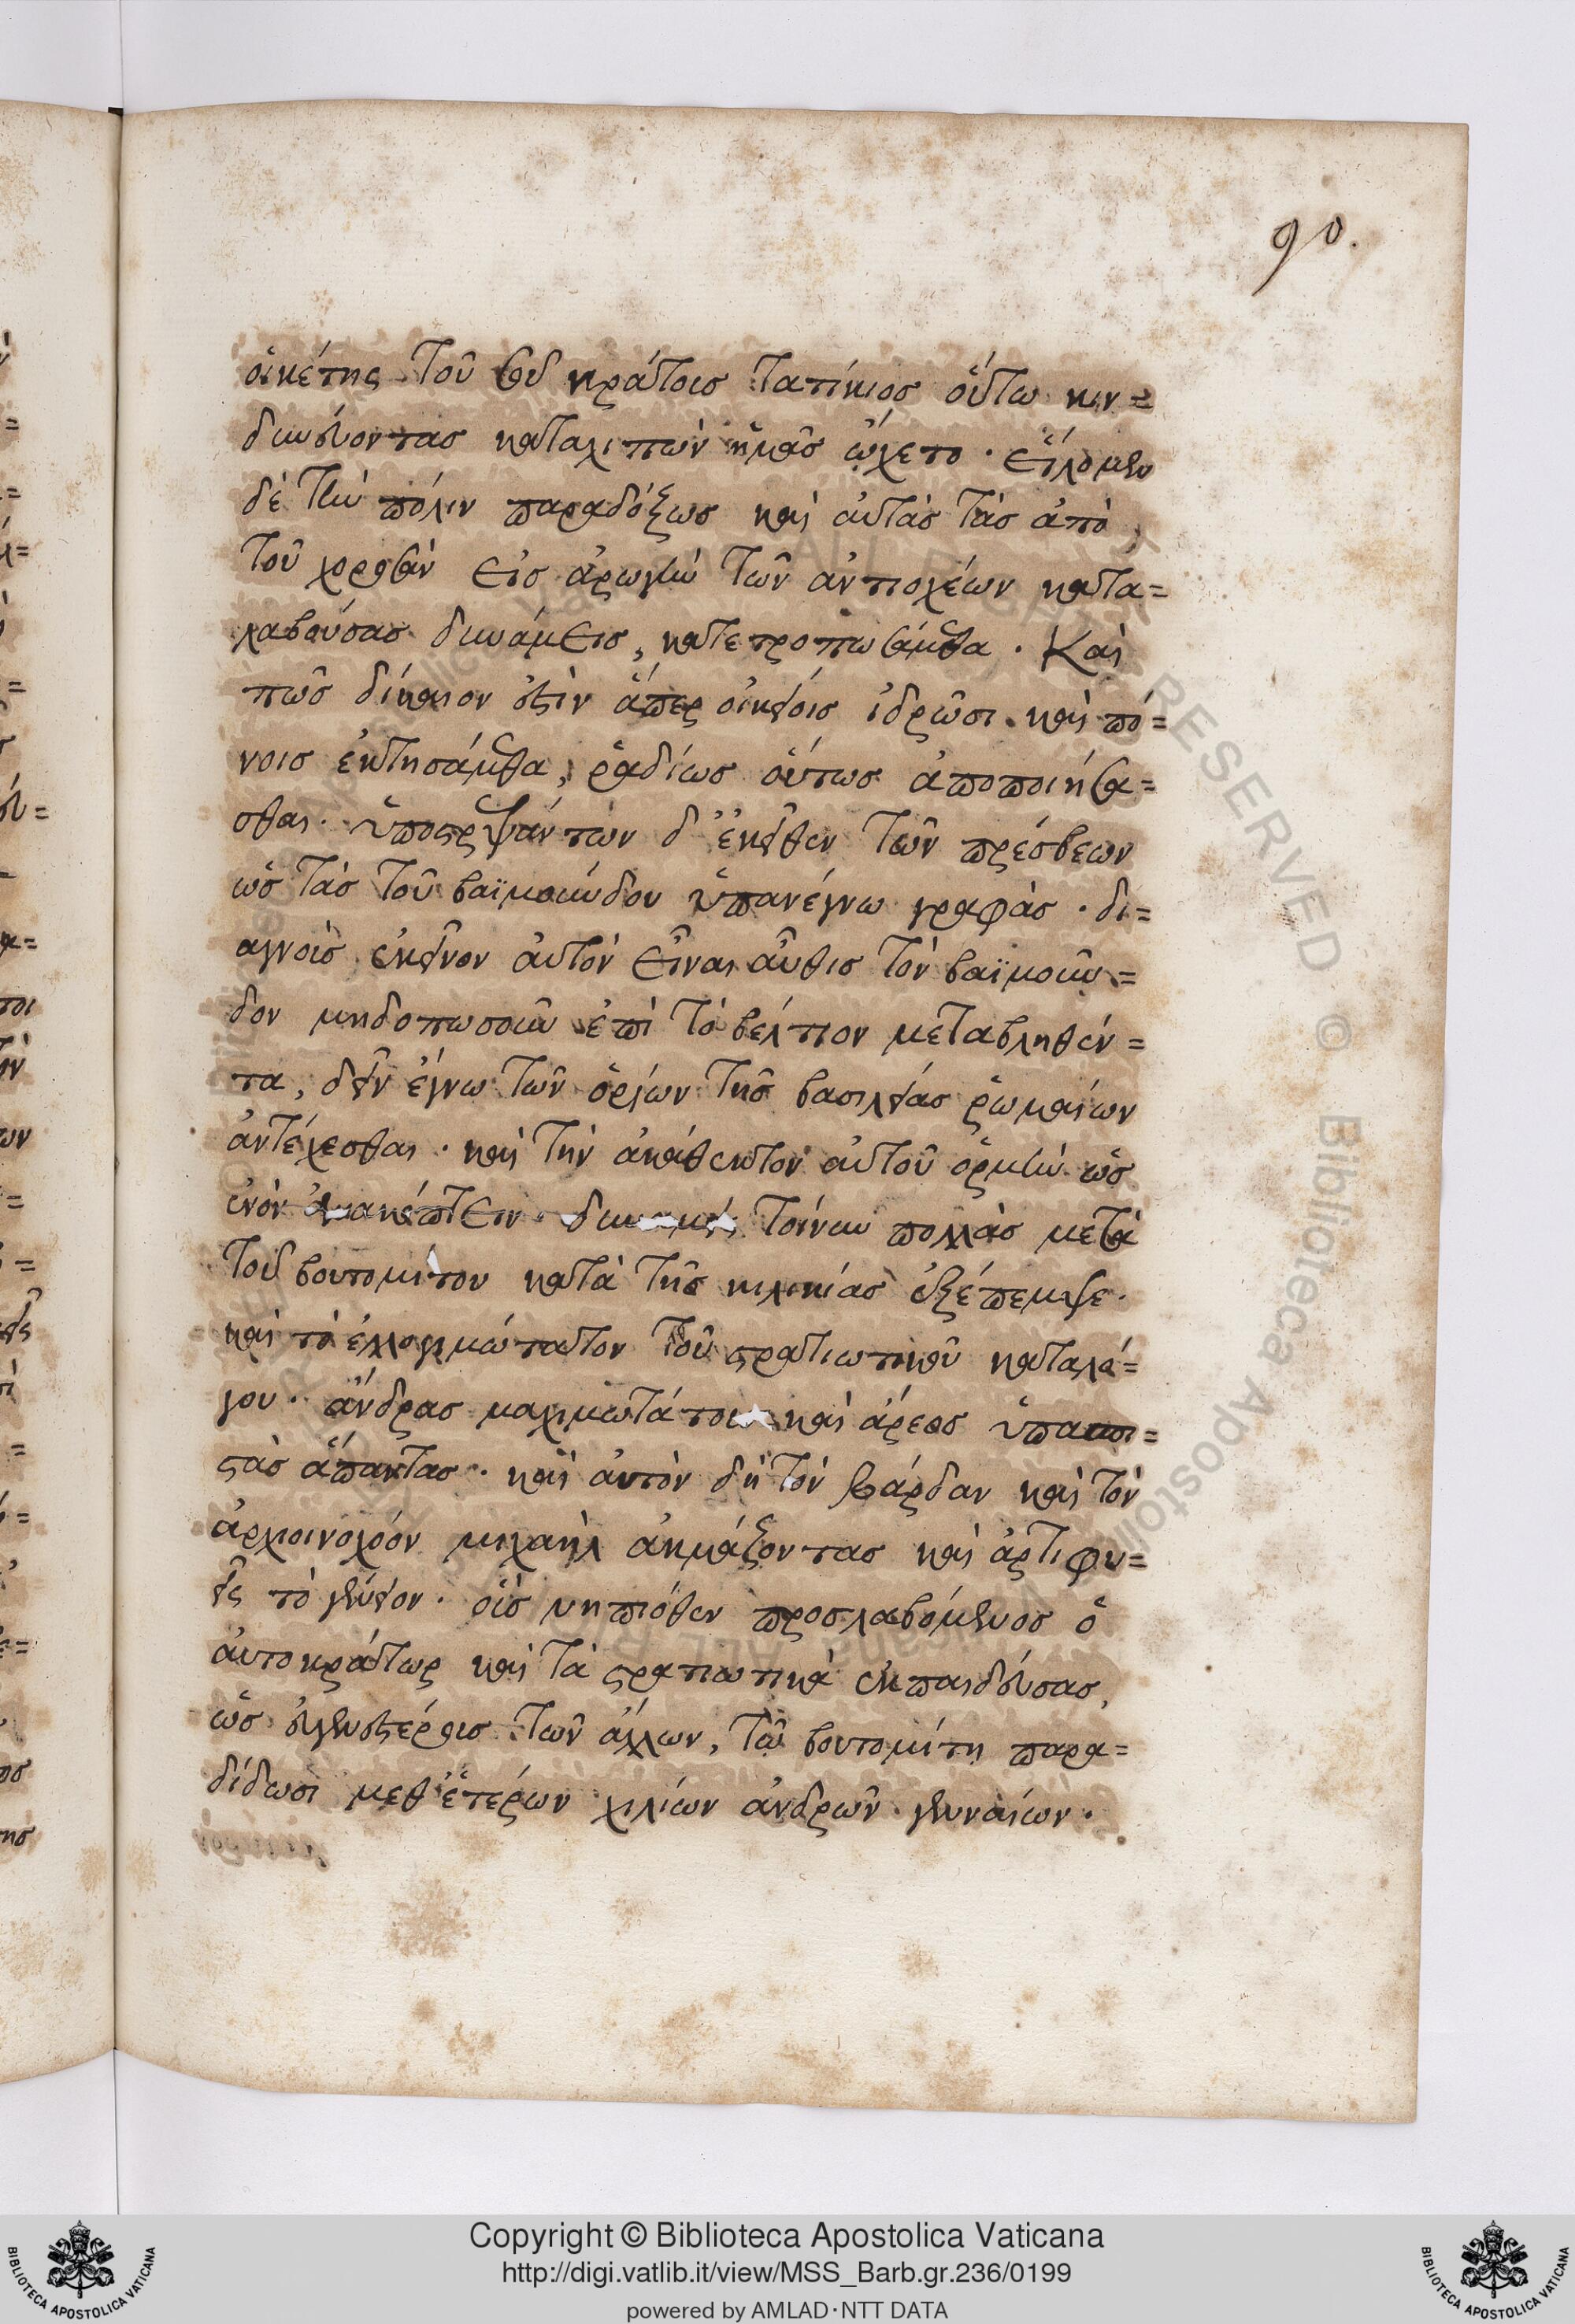 90.
οἰκέτης τοῦ σοῦ κράτους Τατίκιος οὕτω κιν=
δυνεύοντας καταλιπὼν ἡμᾶς ᾤχετο. εἵλομεν
δὲ τὴν πόλιν παραδόξως καὶ αὐτὰς τὰς ἀπὸ
τοῦ χοροσὰν εἰς ἀρωγὴν τῶν ἀντιοχέων κατα=
λαβούσας δυνάμεις, κατετροπωσάμεθα. Καὶ
πῶς δίκαιον ἐστὶν ἅπερ οἰκείοις ἱδρῶσι καὶ πό=
νοις ἐκτησάμεθα, ῥαδίως οὕτως ἀποποιήσα=
σθαι. ὑποστρεψάντων δ' ἐκεῖθεν τῶν πρέσβεων
ὡς τὰς τοῦ βαϊμούνδου ὑπανέγνω γραφὰς. δι=
αγνοὺς ἐκεῖνον αὐτὸν εἶναι αὖθις τὸν βαϊμοῦν=
δον μηδοπωσοῦν ἐπὶ τὸ βέλτιον μεταβληθέν=
τα, δεῖν ἔγνω τῶν ὁρίων τῆς βασιλείας ῥωμαίων
ἀντέχεσθαι. καὶ τὴν ἀκάθεκτον αὐτοῦ ὁρμὴν ὡς
ἐνὸν ἀνακόπτειν. δυνάμεις τοίνυν πολλὰς μετὰ
τοῦ βουτουμίτου κατὰ τῆς κιλικίας ἐξέπεμψε.
καὶ τὸ ἐλλογιμώτατον τοῦ στρατιωτικοῦ καταλό=
γου. ἄνδρας μαχιμωτάτους καὶ ἄρεος ὑπασπι=
στὰς ἅπαντας. καὶ αὐτὸν δὴ τὸν βάρδαν καὶ τὸν
ἀρχιοινοχόον μιχαὴλ ἀκμάζοντας καὶ ἀρτιφυ=
εῖς τὸ γένειον. οὓς νηπιόθεν προσλαβόμενος ὁ
αὐτοκράτωρ καὶ τὰ στρατιωτικὰ ἐκπαιδεύσας,
ὡς εὐγενεστέρους τῶν ἄλλων, τῷ βουτουμίτῃ παρα=
δίδωσι μεθ' ἑτέρων χιλίων ἀνδρῶν γενναίων.
Copyright © Biblioteca Apostolica Vaticana
http://digi.vatlib.it/view/MSS_Barb.gr.236/0199
powered by AMLAD·NTT DATA
BIBLIOTECA APOSTOLICA VATICANA
BIBLIOTECA APOSTOLICA VATICANA